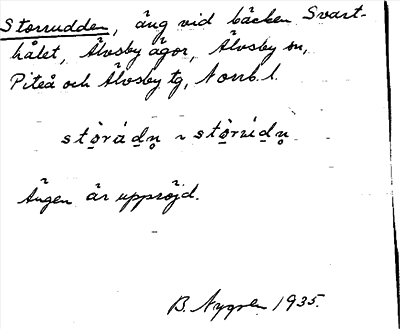 Storrudden, äng vid bäcken Svart-
hålet, Älvsby ägor, Älvsby sn,
Piteå och Älvsby tg, Norrb. l.
Ängen är uppröjd.
B. Nygren 1935.